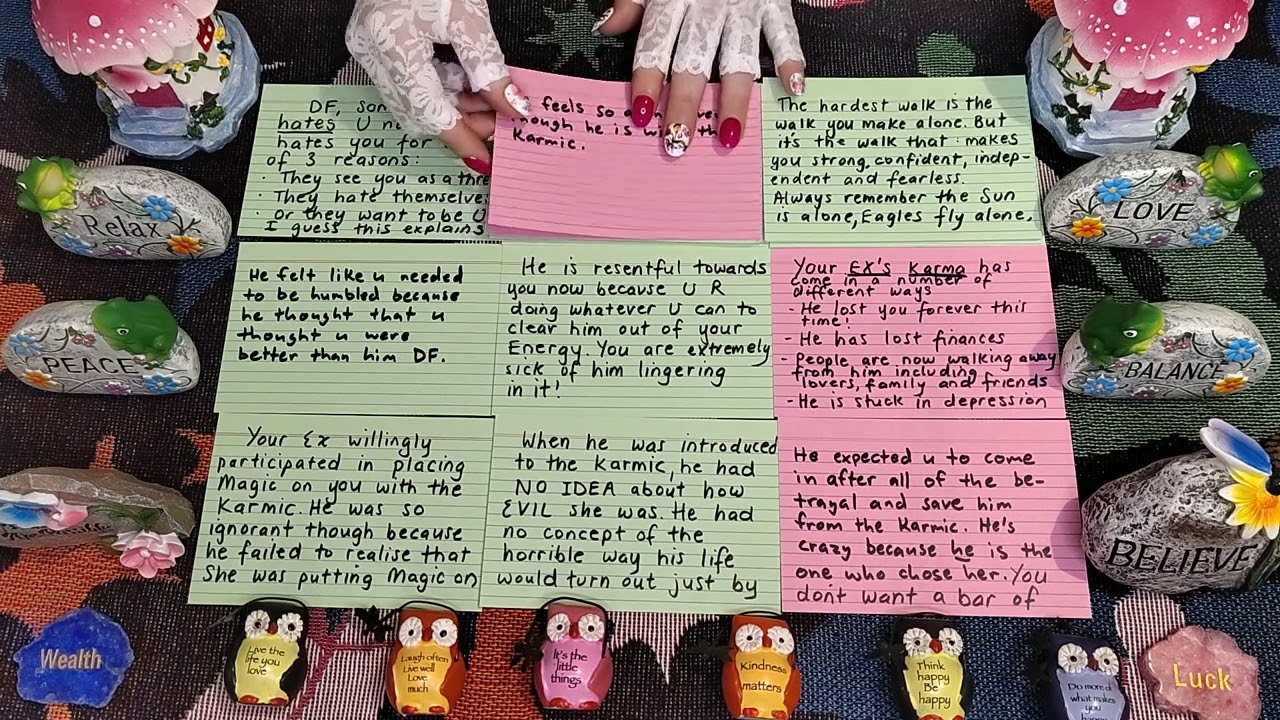 DF, som
hates U n
hates you for
of 3 reasons:
· They see you as a thre
· They hate themselve
· Or they want to be U
I guess this explains
feels so
though he is wi th
Karmic.
The hardest walk is the
walk you make alone. But
it's the walk that makes
you strong, confident, indep-
endent and fearless.
Always remember the Sun
is alone, Eagles fly alone,
He felt like u needed
to be humbled because
he thought that u
thought u were
better than him DF.
He is resentful towards
you now because U R
doing whatever U can to
clear him out of your
Energy. You are extremely
sick of him lingering
in it!
Your EX's Karma has
come in a number of
different ways
- He lost you forever this
time!
- He has lost finances
- People are now walking away
from him including
lovers, family and friends
- He is stuck in depression
Your Ex willingly
participated in placing
Magic on you with the
Karmic. He was so
ignorant though because
he failed to realise that
She was putting Magic on
When he was introduced
to the Karmic, he had
NO IDEA about how
EVIL she was. He had
no concept of the
horrible way his life
would turn out just by
He expected u to come
in after all of the be-
trayal and save him
from the Karmic. He's
crazy because he is the
one who chose her. You
dont want a bar of
Relax
PEACE
LOVE
BALANCE
BELIEVE
Wealth
Live the
life you
love
Laugh often
Live well
Love
much
It's the
little
things
Kindness
matters
Think
happy
Be
happy
Do more of
what makes
you
Luck